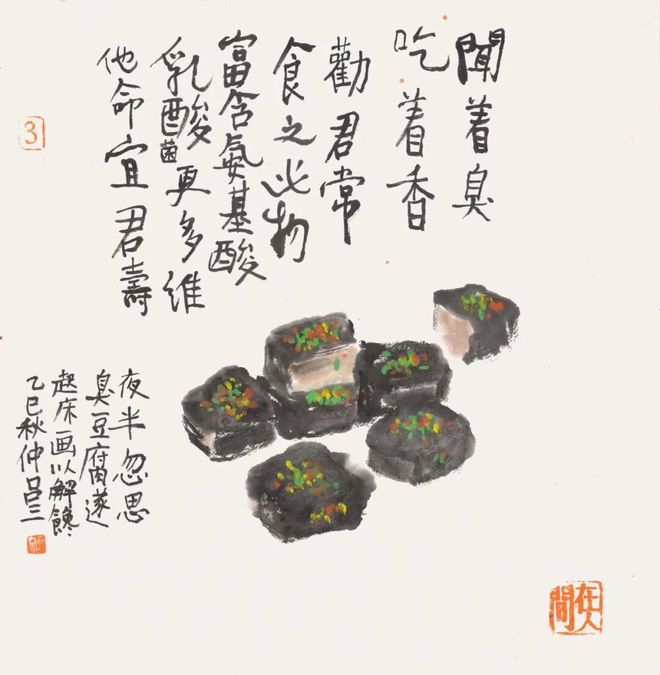 聞着臭
吃着香
勸君常
食之此物
富含氨基酸
乳酸菌更多維
他命宜君壽
夜半忽思
臭豆腐遂
起床画以解饞
乙巳秋仲吕三
3
在人間